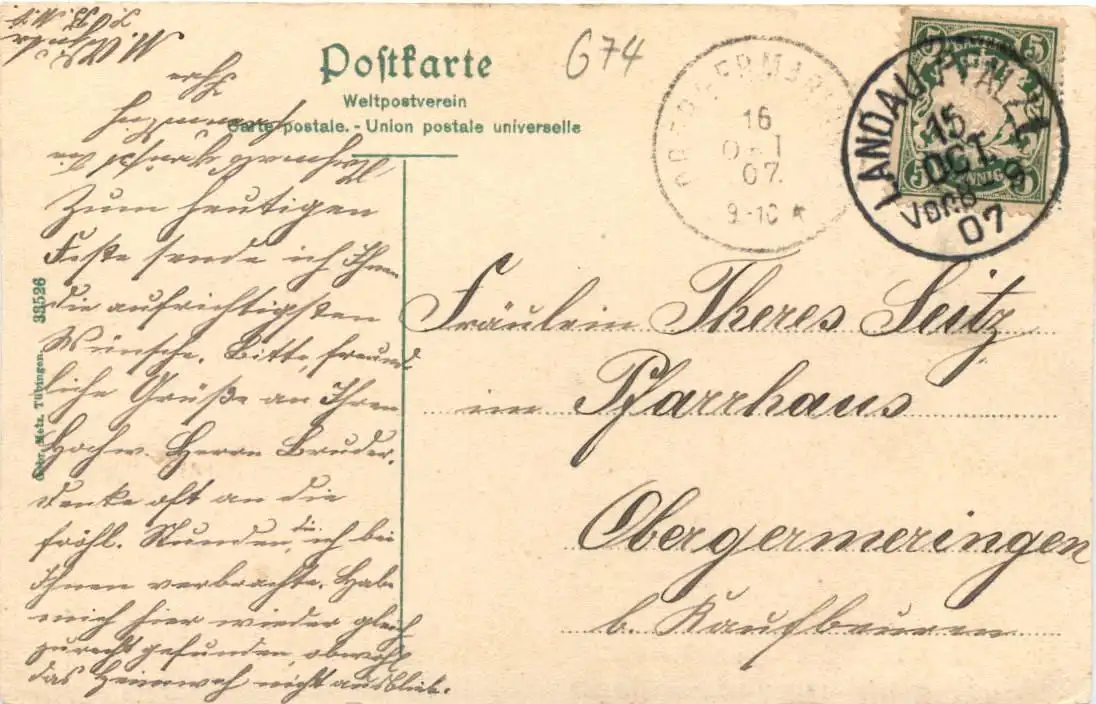 Postkarte
Weltpostverein
Carte postale. - Union postale universelle
674
16
OCT
07.
9-10
LANDAU PFALZ
15
OCT
VOR.8-9
07
5
5
5
PFENNIG
Zum heutigen
Feste sende ich Ihnen
die aufrichtigsten
Wünsche. Bitte, freund
liche Grüße an Ihren
Hochw. Herrn Bruder.
Denke oft an die
fröhl. Stunden, die ich bei
Ihnen verbrachte. Habe
mich hier wieder gleich
zurecht gefunden, obwohl
das Heimweh nicht ausblieb.
Fräulein Theres Seitz
im Pfarrhaus
Obergermeringen
b. Kaufbeuren
Gebr. Metz, Tübingen. 33526